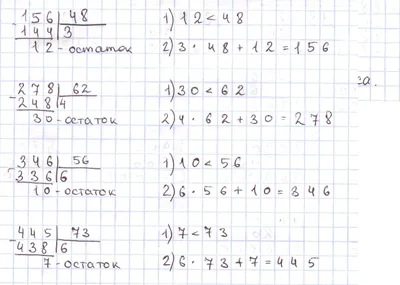 156 | 48 1) 12 < 48
- 144 | 3
12 - остаток 2) 3 · 48 + 12 = 156
278 | 62 1) 30 < 62
- 248 | 4
30 - остаток 2) 4 · 62 + 30 = 278
346 | 56 1) 10 < 56
- 336 | 6
10 - остаток 2) 6 · 56 + 10 = 346
445 | 73 1) 7 < 73
- 438 | 6
7 - остаток 2) 6 · 73 + 7 = 445